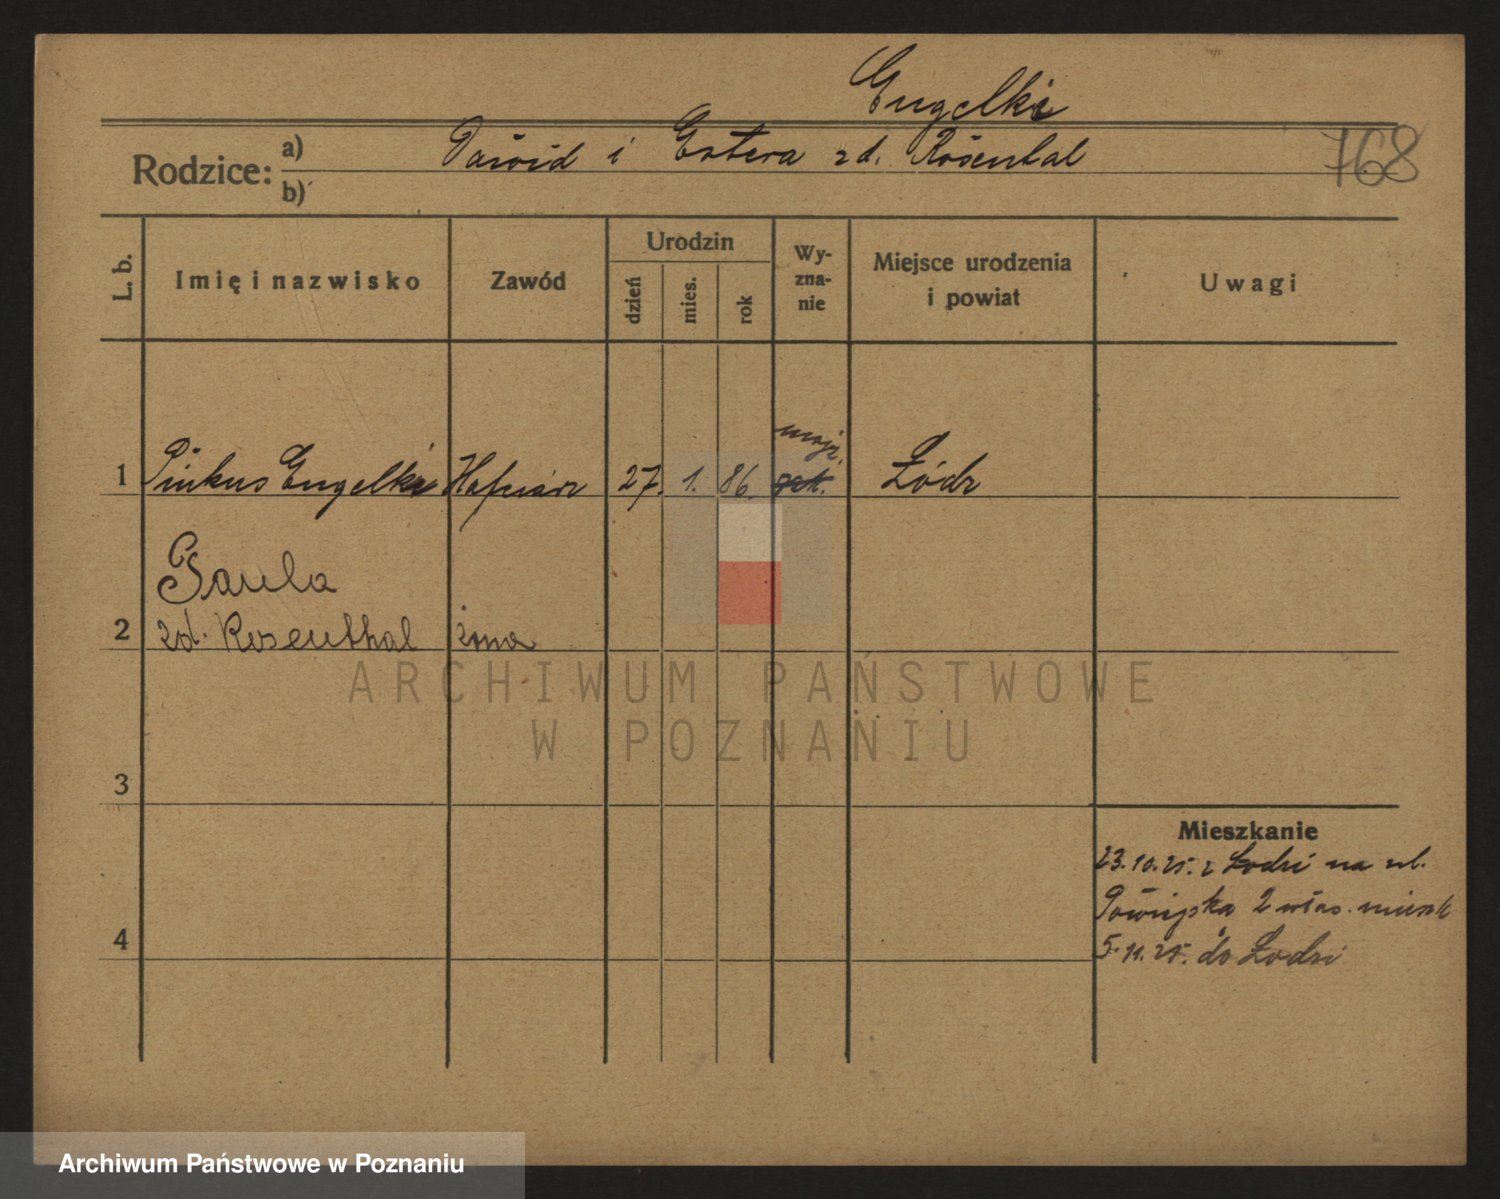 Engelki
Rodzice: a) Dawid i Estera zd. Rosental
b)
768
L. b.
Imię i nazwisko
Zawód
Urodzin
dzień
mies.
rok
Wy-
zna-
nie
Miejsce urodzenia
i powiat
Uwagi
mojż.
1 Pinkus Engelki Hafciarz 27. 1. 86. Łódz
Paula
2 zd. Rosenthal żona
ARCHIWUM PAŃSTWOWE
W POZNANIU
3
Mieszkanie
23.10.25. z Łodzi na ul.
2 włas. mieszk
4
5.11.25. do Łodzi
Archiwum Państwowe w Poznaniu